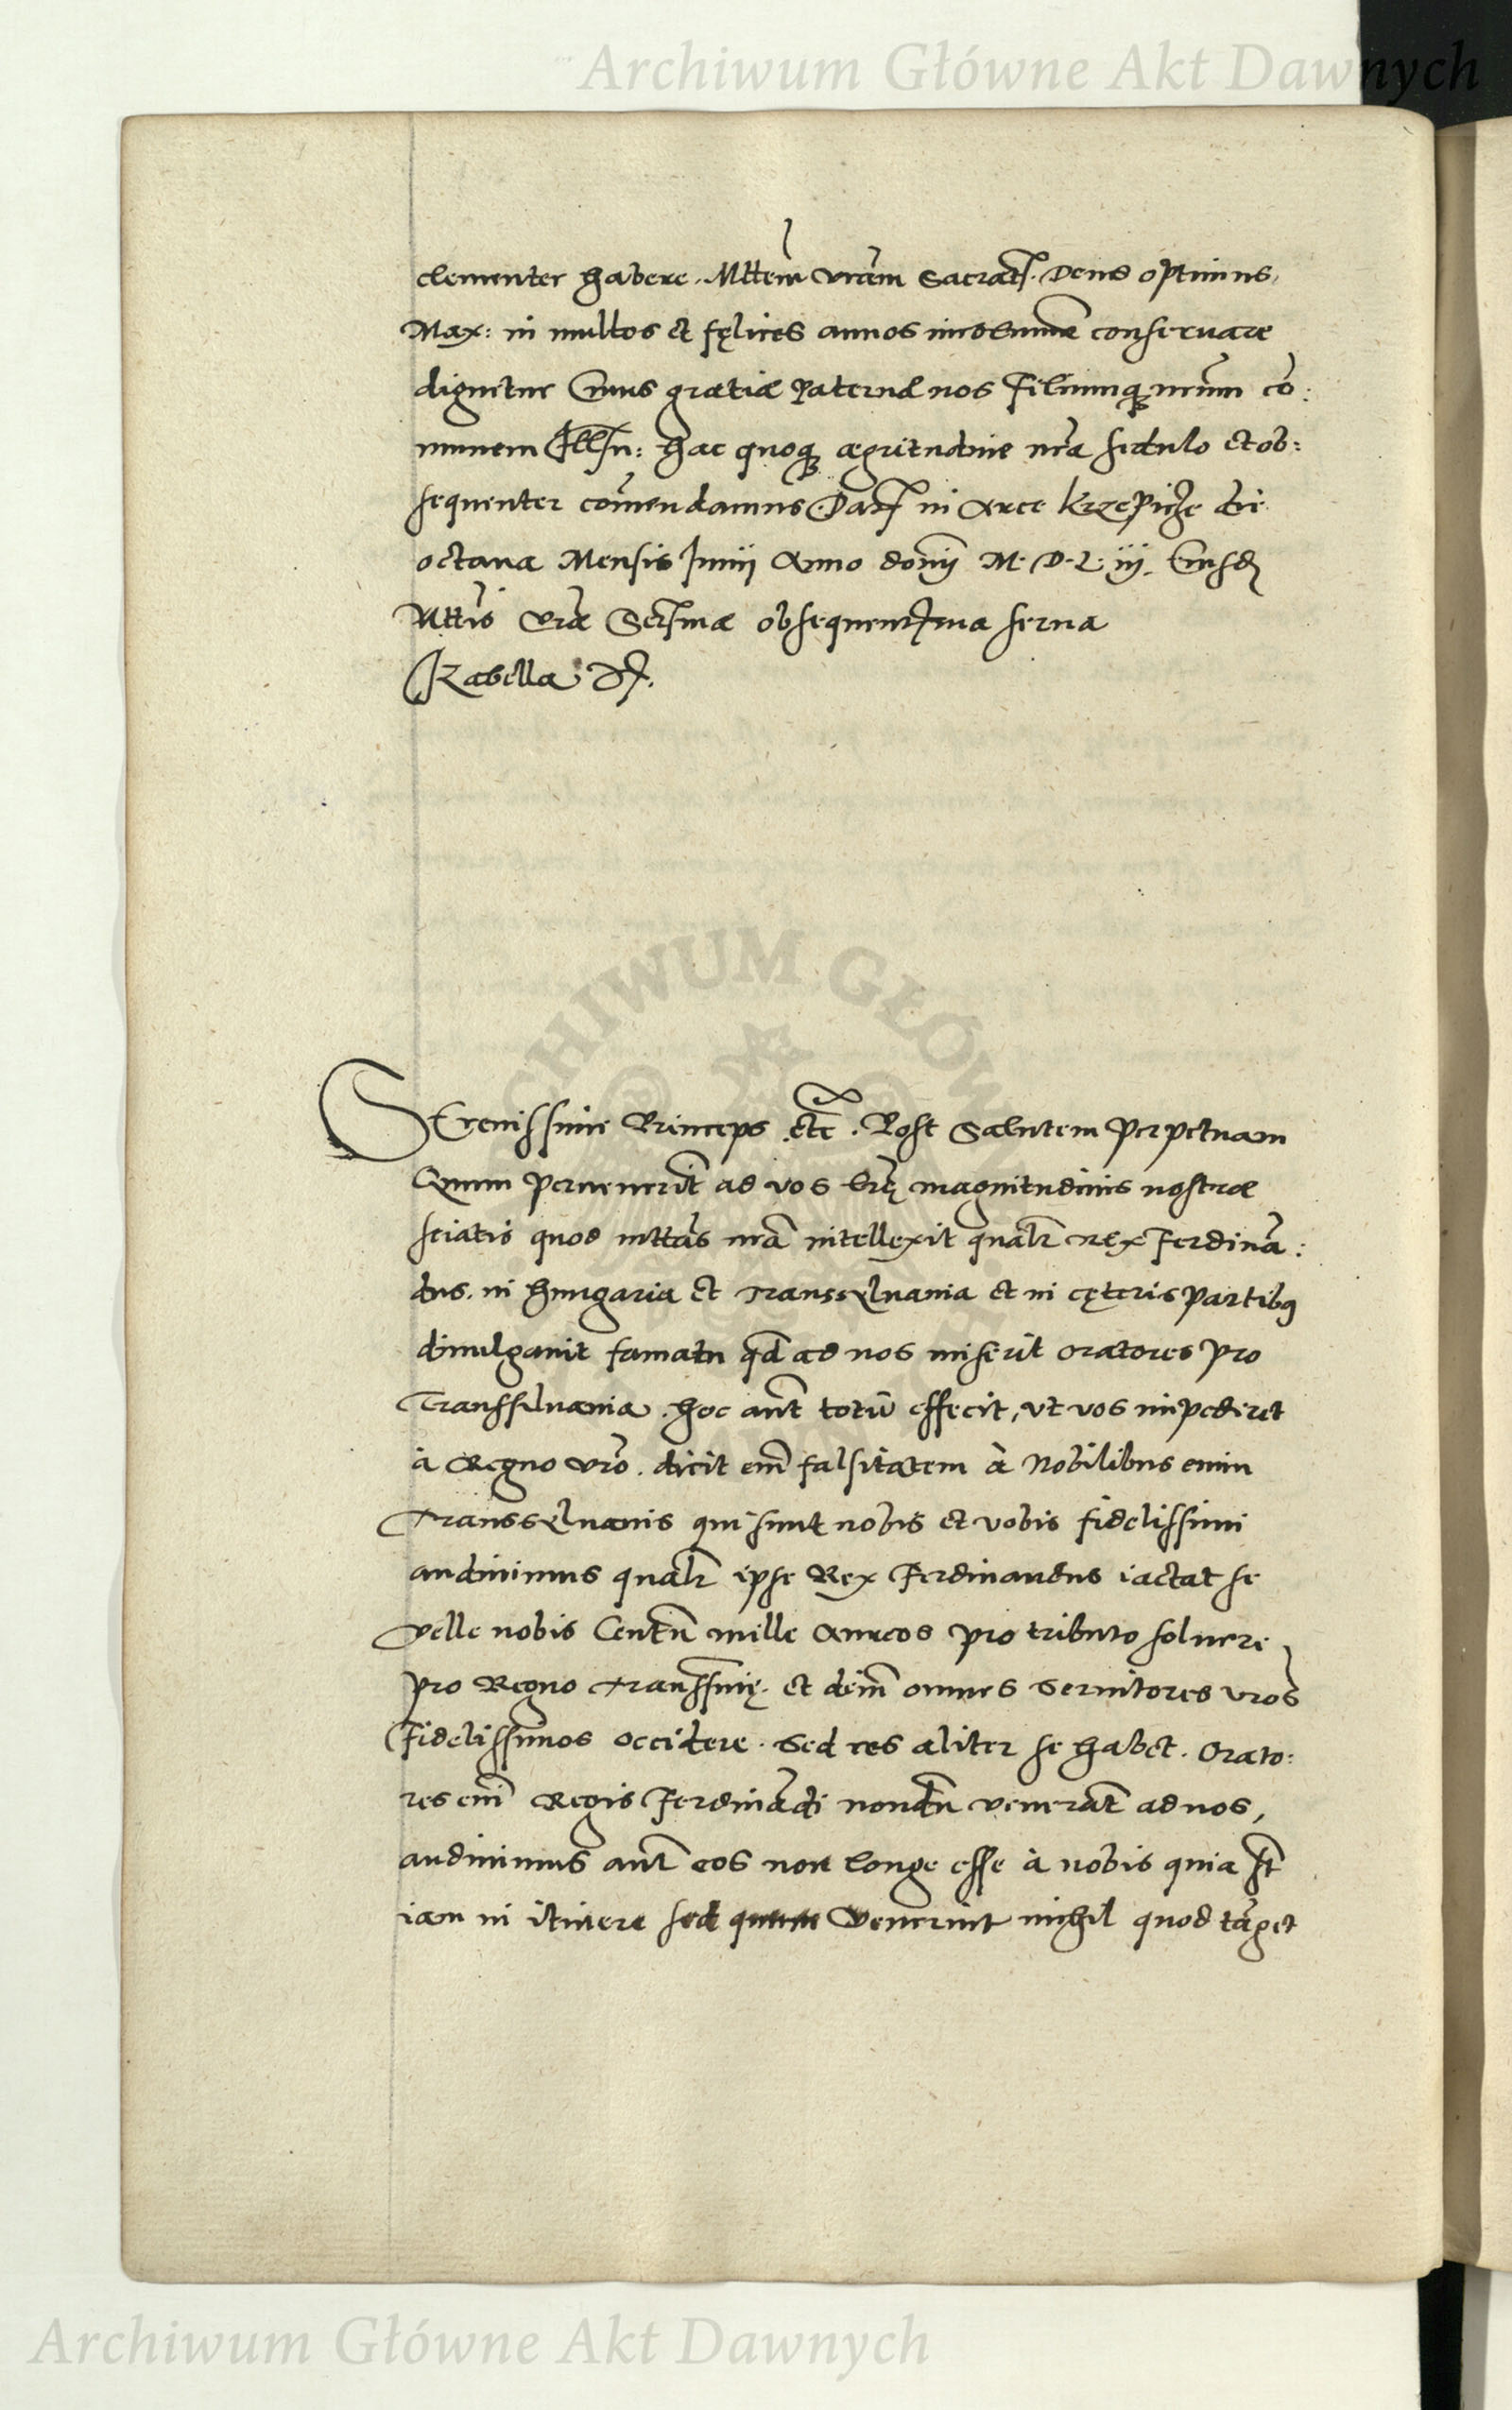 Archiwum Główne Akt Dawnych
clementer habere. Mttem vram Sacratss. Deus optimus,
Max: in multos et fęlices annos incolumem conservare
dignetur Cuius gratiæ Paternæ nos Filiumq nrum co:
munem Illm: hac quoq ægritudine nra sedulo et ob:
sequenter comendamus. Dat in Arce Krzepicze die
octava Mensis Junii Anno domi M. D. L. iij. Eiusd
Mttis vræ Sermæ obsequentissima serva
Izabella R.
SErenissime Princeps etc. Post Salutem Perpetuam
Quum pervenerit ad vos lræ magnitudinis nostræ
sciatis quod mttas nra intellexit qualr Rex Ferdina:
dus. in Hungaria et Transsylvania et in cęteris partibus
divulgavit famam qd ad nos miserit oratores pro
Transsilvania. hoc aut totu effecit, vt vos impediret
à Regno vro. dicit em falsitatem à Nobilibus enim
Transsylvanis qui sunt nobis et vobis fidelissimi
audivimus qualr ipse Rex Ferdinandus iactat se
velle nobis Centu mille Aureos pro tributo solvere
pro Regno Transsnię. et dein omnes Servitores vros
Fidelissimos occidere. Sed res aliter se habet. Orato:
res em Regis Ferdinadi nondu venerut ad nos,
audivimus aut eos non longe esse à nobis quia st
iam in itinere sed quum Venerint nihil quod taget
ARCHIWUM GŁÓWNE AKT DAWNYCH
Archiwum Główne Akt Dawnych